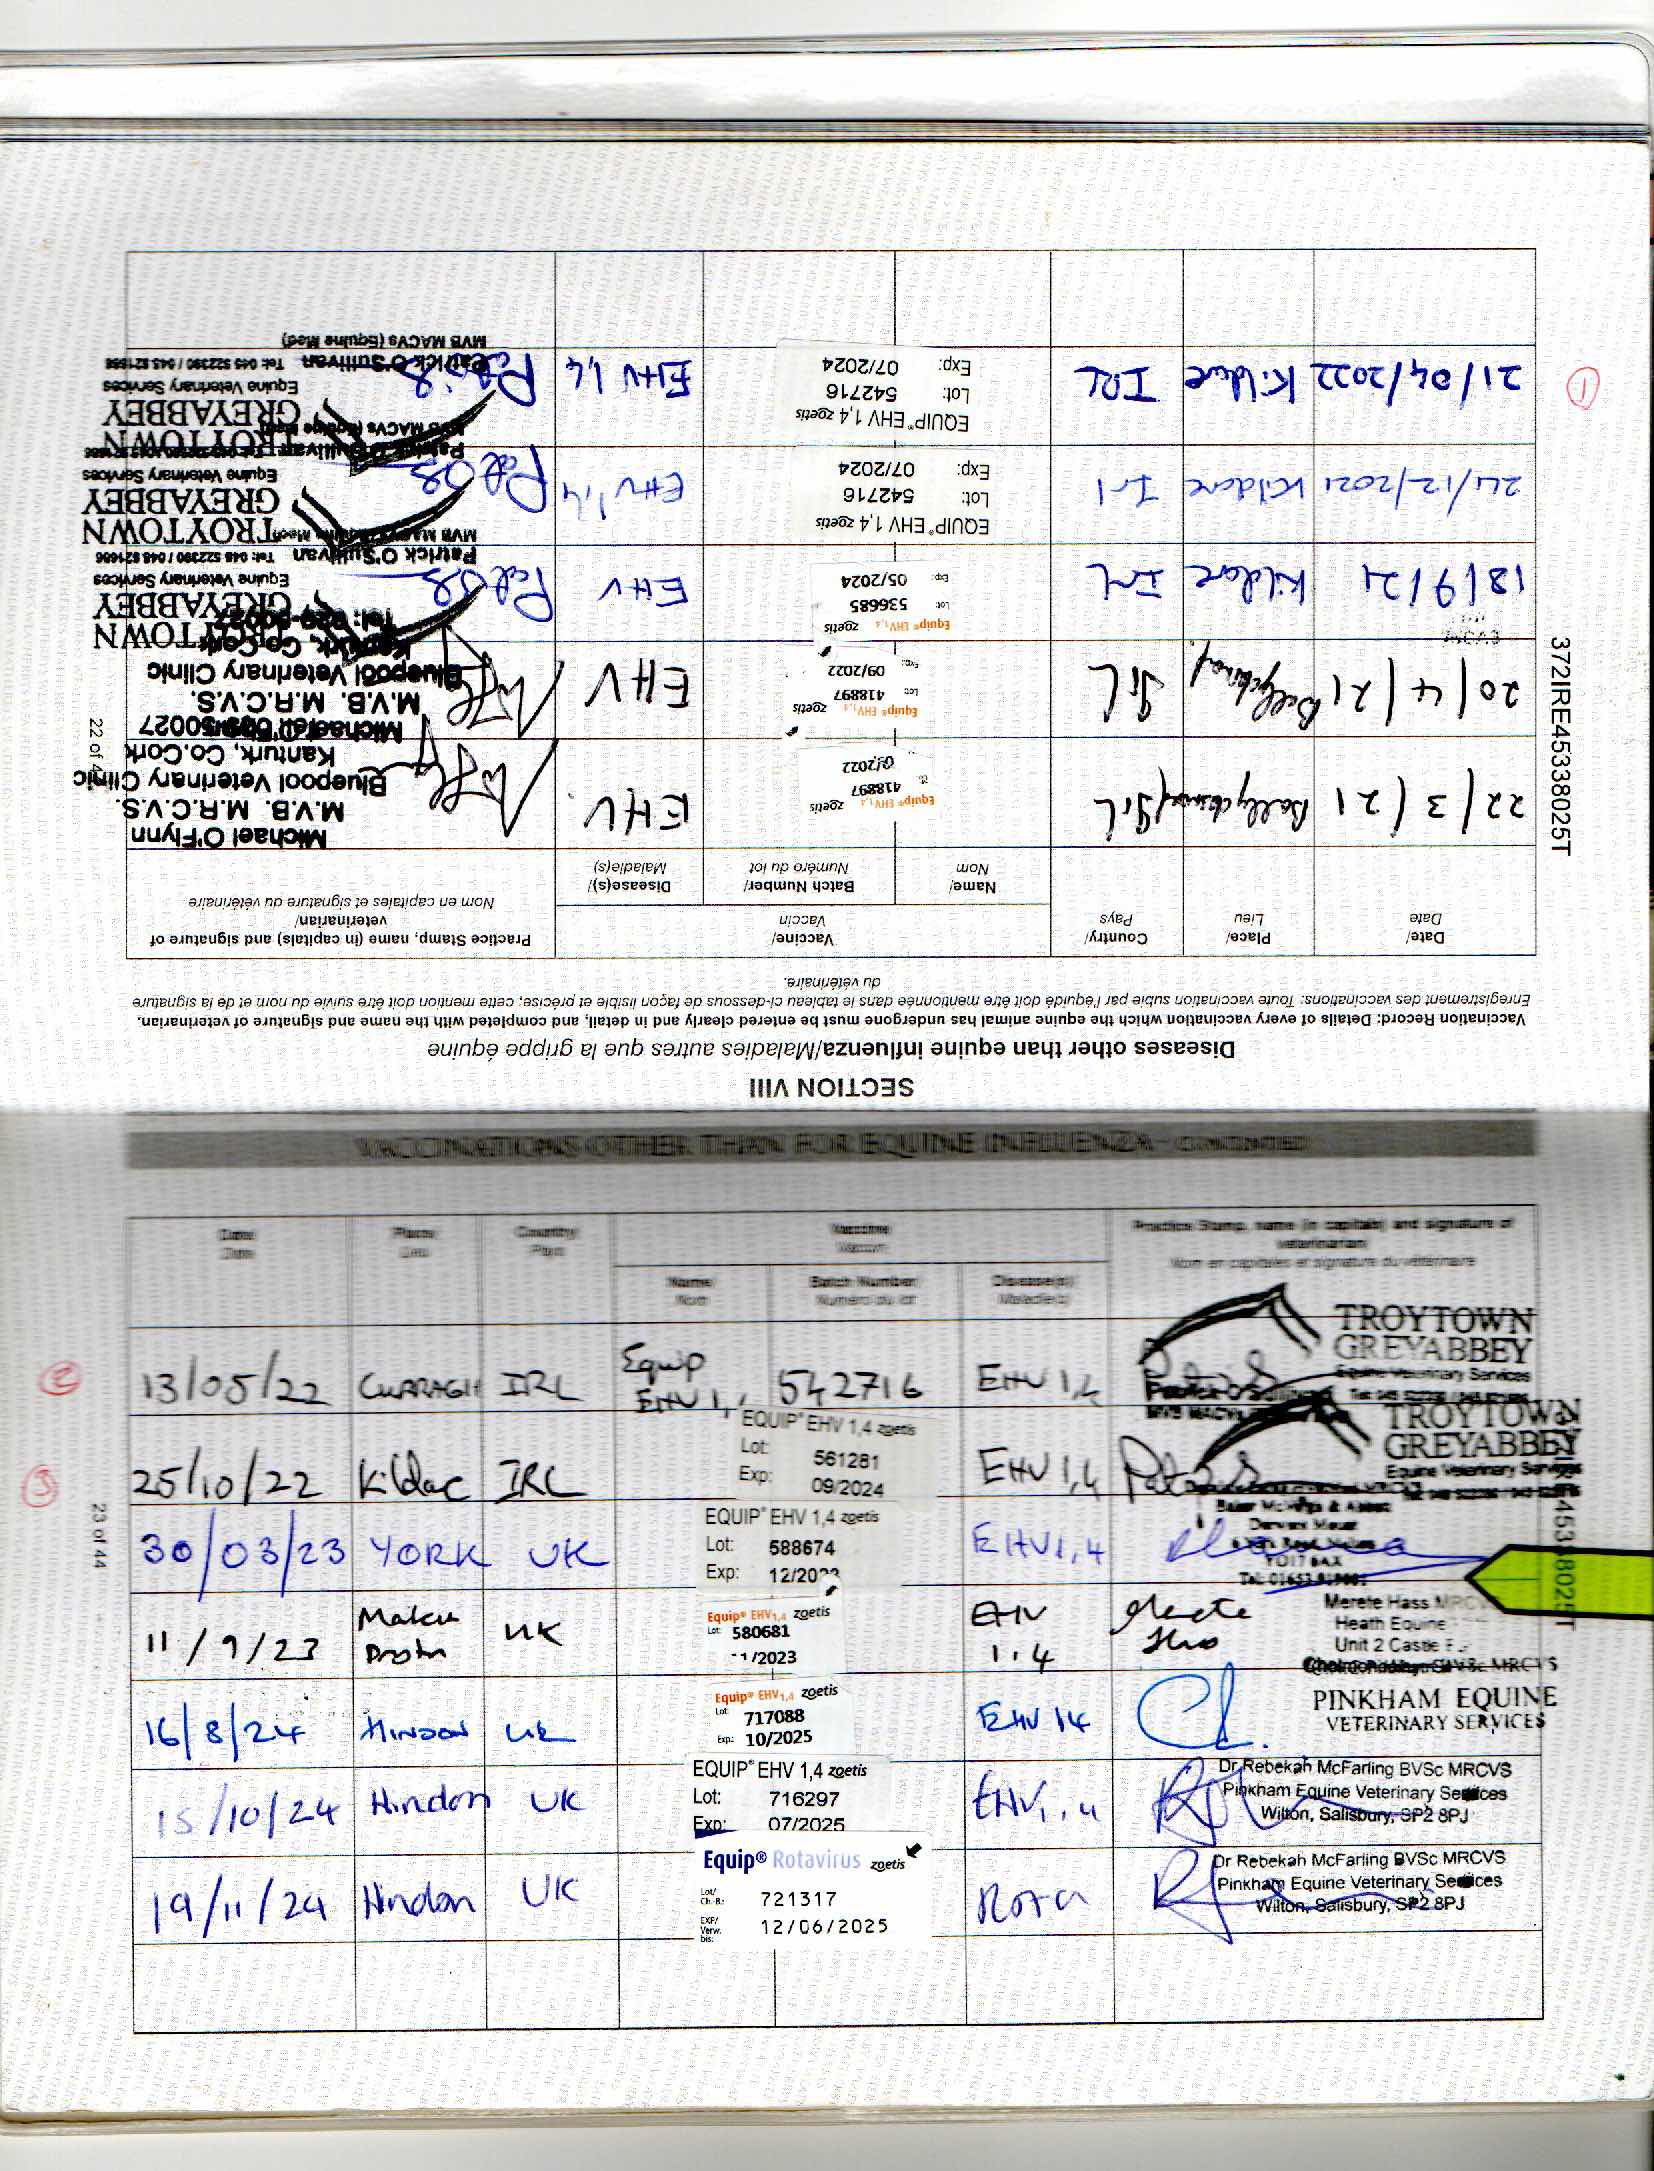 SECTION VIII
Diseases other than equine influenza/Maladies autres que la grippe équine
Vaccination Record: Details of every vaccination which the equine animal has undergone must be entered clearly and in detail, and completed with the name and signature of veterinarian.
Enregistrement des vaccinations: Toute vaccination subie par l'équidé doit être mentionnée dans le tableau ci-dessous de façon lisible et précise, cette mention doit être suivie du nom et de la signature
du vétérinaire.
Date/ Place/ Country/ Vaccine/ Practice Stamp, name (in capitals) and signature of
Date Lieu Pays Vaccin veterinarian/
Nom en capitales et signature du vétérinaire
Name/ Batch Number/ Disease(s)/
Nom Numéro du lot Maladie(s)
22/3/21 IrL Equip® EHV1,4 zoetis EHV
418897
09/2022
Michael O'Flynn
M.V.B. M.R.C.V.S.
Bluepool Veterinary Clinic
Kanturk, Co.Cork
20/4/21 IrL Equip® EHV1,4 zoetis EHV
Lot: 418897
Exp.: 09/2022
M.V.B. M.R.C.V.S.
Bluepool Veterinary Clinic
18/9/21 Kildare Irl Equip® EHV1,4 zoetis EHV
Lot: 536685
Exp: 05/2024
TROYTOWN
GREYABBEY
Equine Veterinary Services
Patrick O'Sullivan
24/12/2021 Kildare Irl EQUIP® EHV 1,4 zoetis EHV 1,4
Lot: 542716
Exp: 07/2024
TROYTOWN
GREYABBEY
Equine Veterinary Services
1
21/04/2022 Kildare IRL EQUIP® EHV 1,4 zoetis EHV 1,4
Lot: 542716
Exp: 07/2024
TROYTOWN
GREYABBEY
Equine Veterinary Services
Tel: 045 522390 / 045 521686
Patrick O'Sullivan
MVB MACVs (Equine Med)
372IRE45338025T
22 of 4
VACCINATIONS OTHER THAN FOR EQUINE INFLUENZA - CONTINUED
Date Place Country Vaccine Practice Stamp, name (in capitals) and signature of
Date Lieu Pays Vaccin veterinarian
Nom en capitales et signature du vétérinaire
Name Batch Number Disease(s)
Nom Numéro du lot Maladie(s)
2
13/05/22 CURRAGH IRL Equip EHV 1, 542716 EHV 1,4
TROYTOWN
GREYABBEY
Equine Veterinary Services
3
25/10/22 Kildare IRL EQUIP® EHV 1,4 zoetis EHV 1,4
Lot: 561281
Exp: 09/2024
TROYTOWN
GREYABBEY
Equine Veterinary Services
30/03/23 YORK UK EQUIP® EHV 1,4 zoetis EHV 1,4
Lot: 588674
Exp: 12/2023
YO17 6AX
11/9/23 UK Equip® EHV1,4 zoetis EHV 1,4
Lot: 580681
11/2023
Merete Hass MRCV
Heath Equine
Unit 2 Castle F
16/8/24 HINDON UK Equip® EHV1,4 zoetis EHV 14
Lot: 717088
Exp.: 10/2025
PINKHAM EQUINE
VETERINARY SERVICES
15/10/24 Hindon UK EQUIP® EHV 1,4 zoetis EHV1,4
Lot: 716297
Exp: 07/2025
Dr Rebekah McFarling BVSc MRCVS
Pinkham Equine Veterinary Services
Wilton, Salisbury, SP2 8PJ
19/11/24 Hindon UK Equip® Rotavirus zoetis Rota
Lot/
Ch.-B.: 721317
EXP/
Verw.
bis: 12/06/2025
Dr Rebekah McFarling BVSc MRCVS
Pinkham Equine Veterinary Services
Wilton, Salisbury, SP2 8PJ
23 of 44